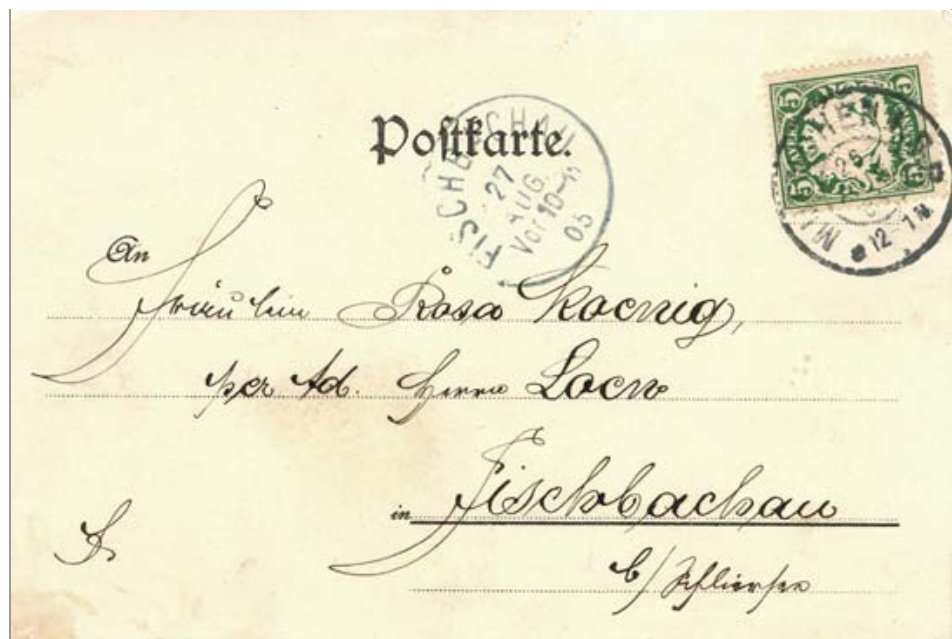 Postkarte.
FISCHBACHAU
27
AUG.
Vor 10-11
05
5 5
5 5
26
12-1N
An
Fräulein Rosa Koenig,
per Ad. Herrn Loew
in Fischbachau
b/ Schliersee